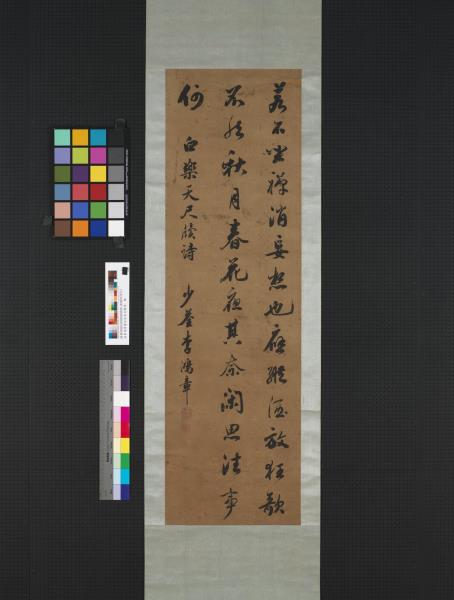 若不坐禪消妄想也應縱酒放狂歌
不然秋月春花夜其奈閑思往事
何 白樂天尺牘詩 少荃李鴻章